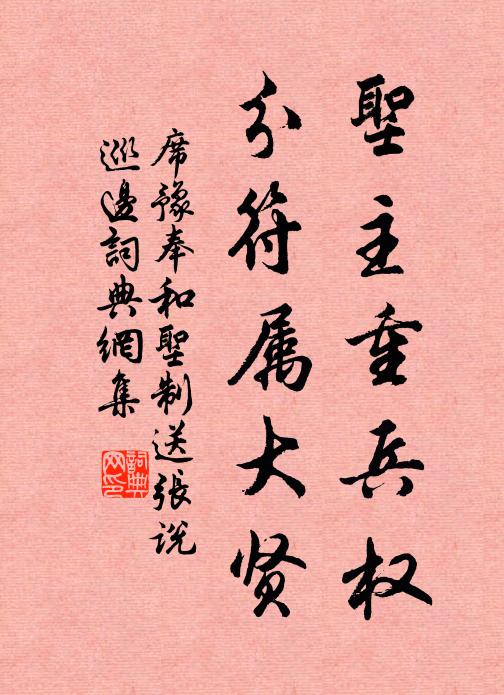 聖主重兵权
分符属大贤
席豫奉和聖制送張说
巡邊詞典網集
詞典网印